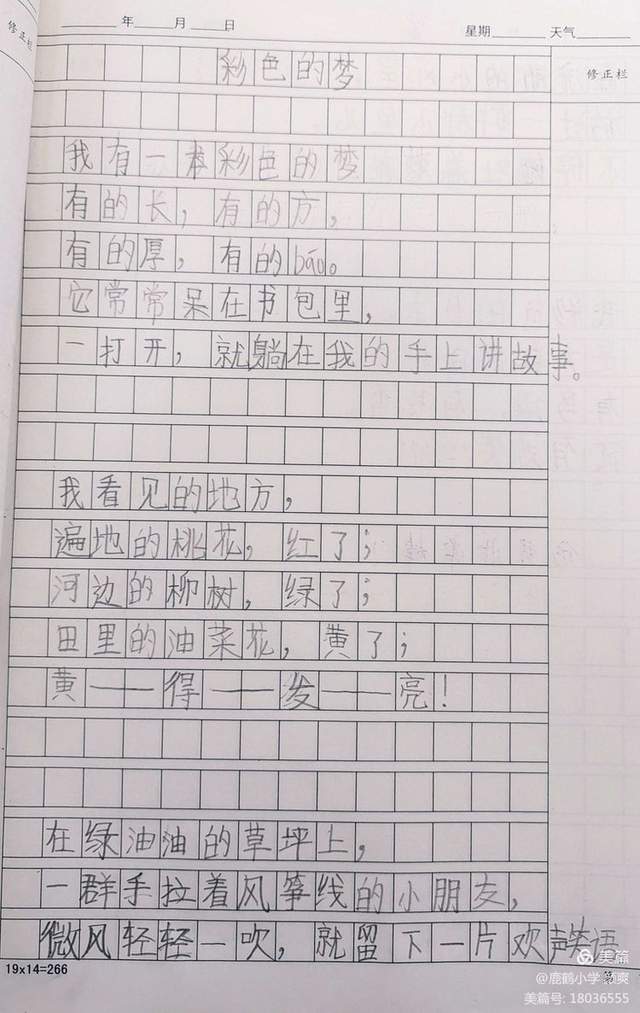 修正栏
年 月 日 星期 天气
修正栏
彩色的梦
我有一本彩色的梦
有的长，有的方，
有的厚，有的báo。
它常常呆在书包里，
一打开，就躺在我的手上讲故事。
我看见的地方，
遍地的桃花，红了；
河边的柳树，绿了；
田里的油菜花，黄了；
黄——得——发——亮！
在绿油油的草坪上，
一群手拉着风筝线的小朋友，
微风轻轻一吹，就留下一片欢声笑语
19x14=266
第
美篇
@鹿鹤小学
爽
美篇号: 18036555